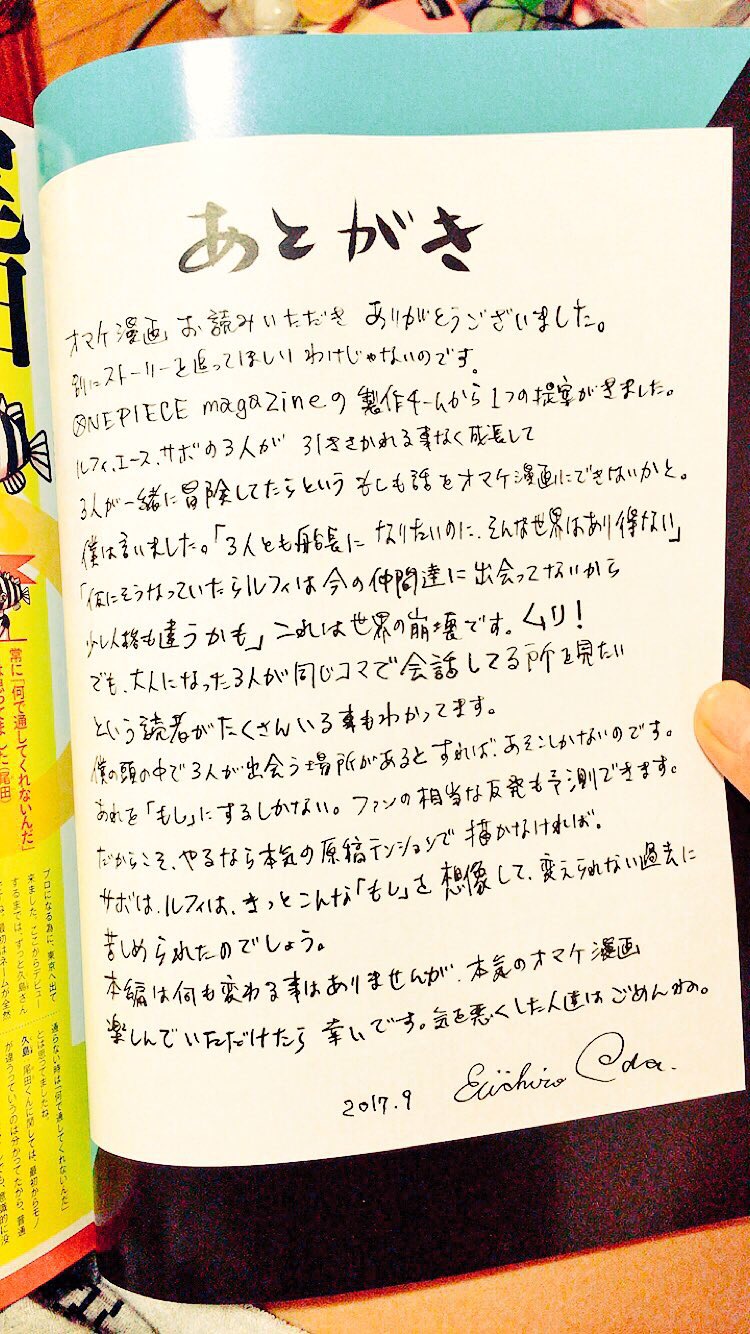 あとがき
オマケ漫画 お読みいただき ありがとうございました。
別にストーリーを追ってほしい わけじゃないのです。
ONEPIECE magazineの 製作チームから 1つの提案がきました。
ルフィ、エース、サボの3人が 引きさかれる事なく成長して
3人が一緒に冒険してたらという もしも話をオマケ漫画にできないかと。
僕は言いました。「3人とも船長に なりたいのに、そんな世界はあり得ない」
「仮にそうなっていたらルフィは今の仲間達に出会ってないから
少し人格も違うかも」これは世界の崩壊です。ムリ!
でも、大人になった3人が同じコマで会話してる所を見たい
という読者がたくさんいる事もわかってます。
僕の頭の中で3人が出会う場所があるとすれば、あそこしかないのです。
あれを「もし」にするしかない。ファンの相当な反発も予測できます。
だからこそ、やるなら本気の原稿テンションで 描かなければ。
サボは、ルフィは、きっとこんな「もし」を 想像して、変えられない過去に
苦しめられたのでしょう。
本編は何も変わる事はありませんが、本気のオマケ漫画
楽しんでいただけたら 幸いです。気を悪くした人達はごめんね。
2017.9 Eiichiro Oda.
田
常に「何で通してくれないんだ」
(尾田)
プロになる為に、東京へ出て
来ました。ここからデビュー
するまでは、ずっと久島さん
通らない時は「何で通してくれないんだ」
とは思ってましたね。
久島 尾田くんに関しては、最初からモノ
が違うっていうのは分かってたから、普通